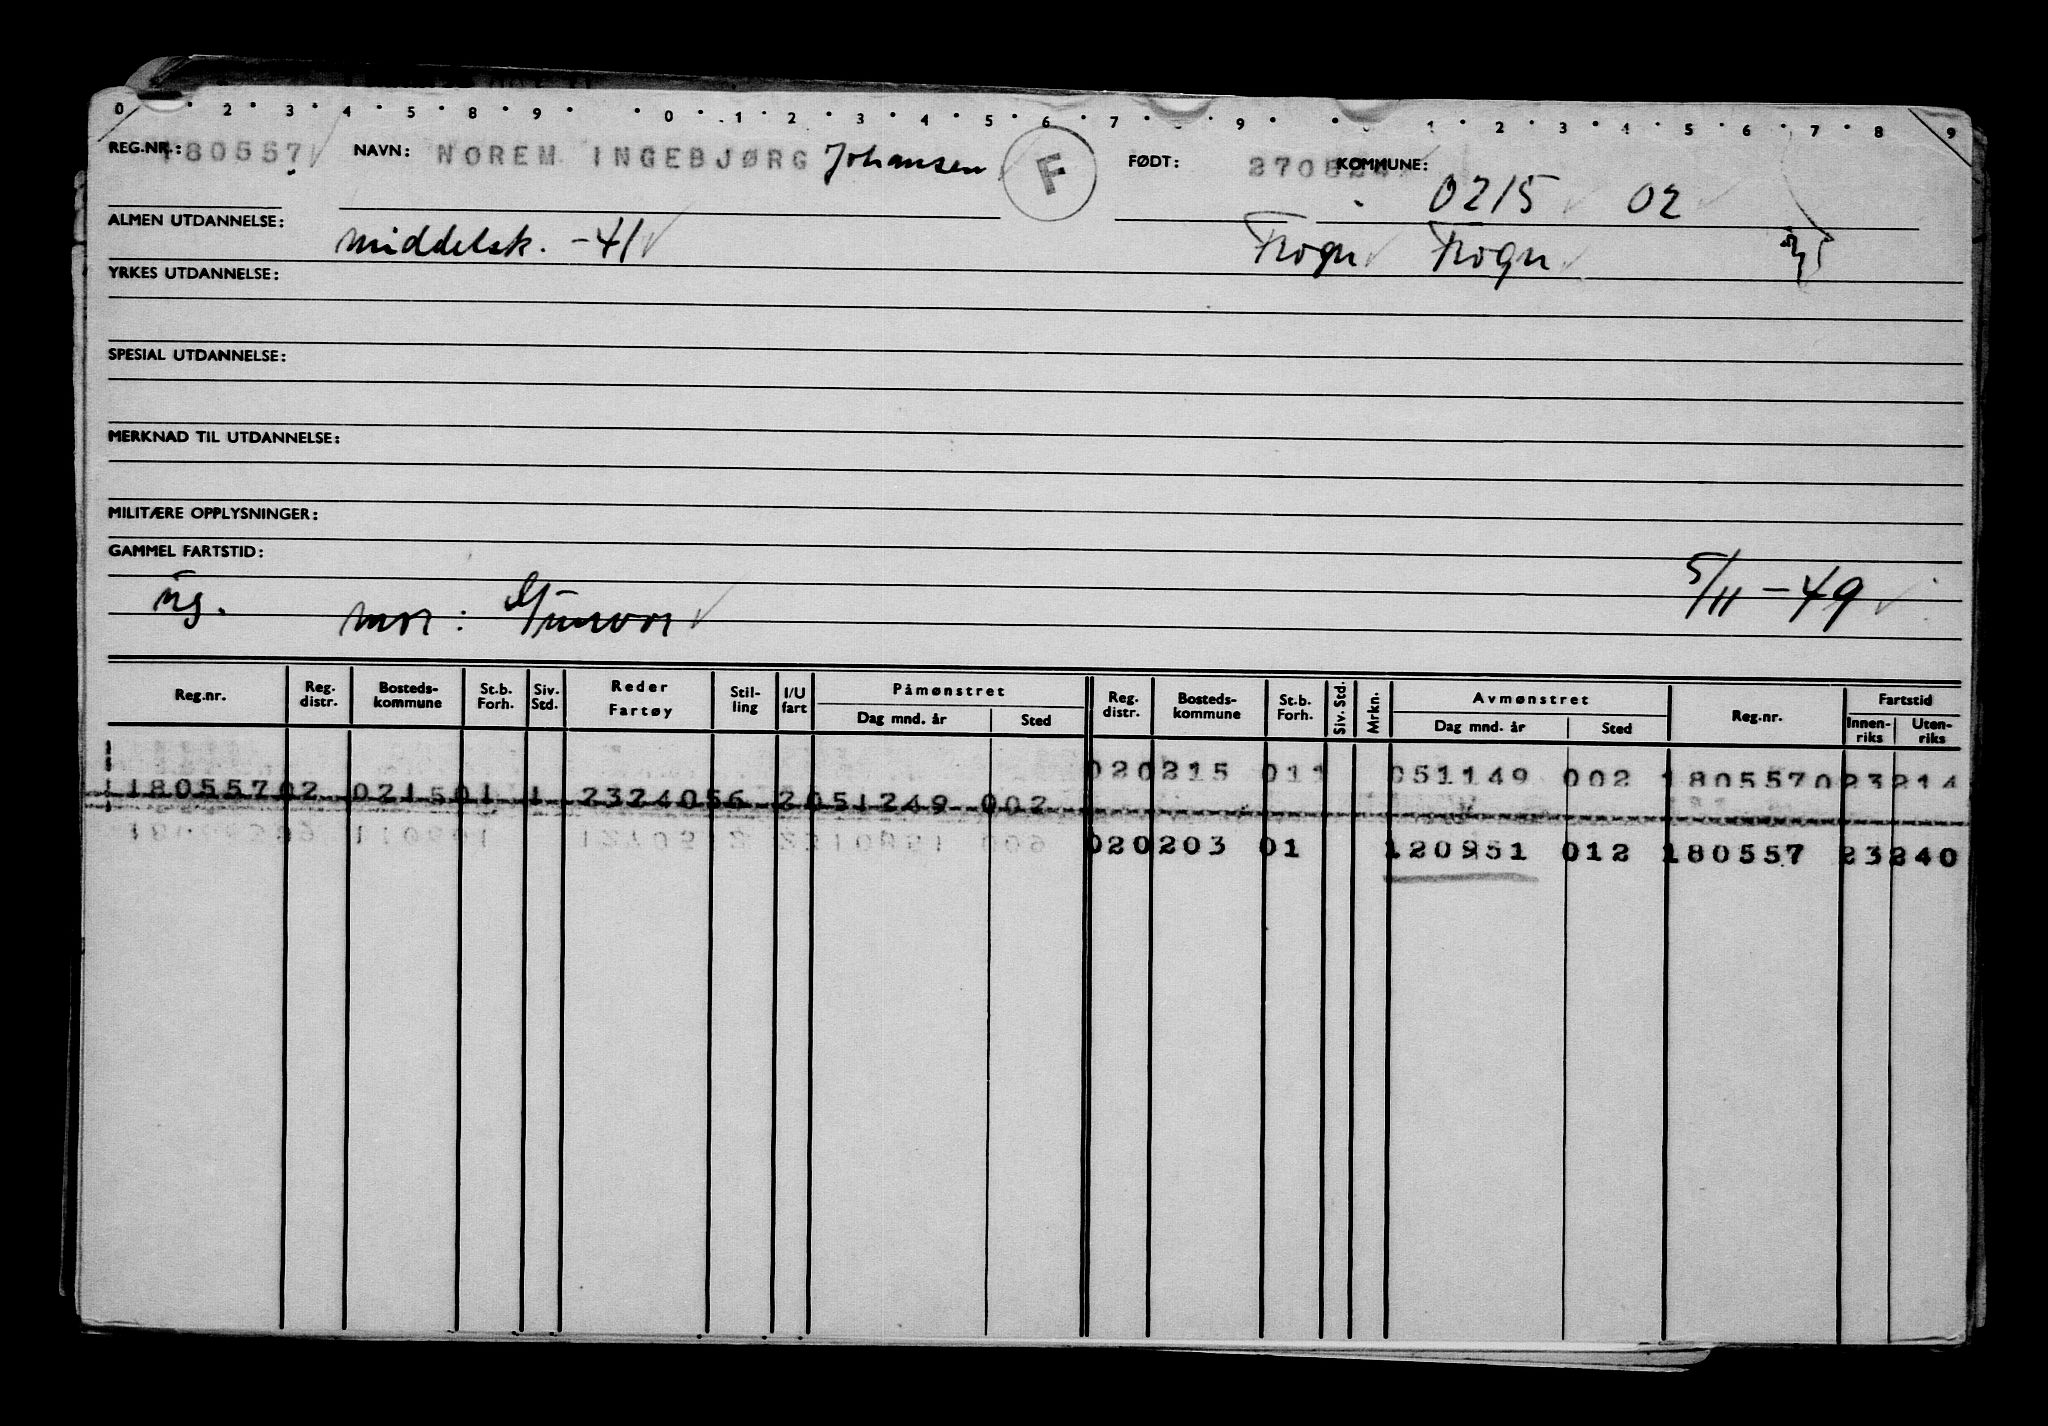 0 2 3 4 5 8 9 0 1 2 3 4 5 6 7 9 1 2 3 4 5 6 7 8 9
REG.NR.: 180557 NAVN: NOREM INGEBJØRG Johansen F FØDT: 270824 KOMMUNE: 0215 02
ALMEN UTDANNELSE: middelsk. -41 Frogn Frogn
YRKES UTDANNELSE:
SPESIAL UTDANNELSE:
MERKNAD TIL UTDANNELSE:
MILITÆRE OPPLYSNINGER:
GAMMEL FARTSTID:
ug. mor: Gunvor 5/11-49
Reg.nr. Reg. distr. Bosteds-kommune St.b. Forh. Siv. Std. Reder Fartøy Stil-ling I/U fart Påmønstret Dag mnd. år Sted Reg. distr. Bosteds-kommune St.b. Forh. Siv. Std. Mrkn. Avmønstret Dag mnd. år Sted Reg.nr. Fartstid Innen-riks Uten-riks
020215 011 051149 002 1805570 23214
18055702 021501 1 23240 56 2 051249 002
020203 01 120951 012 180557 23240